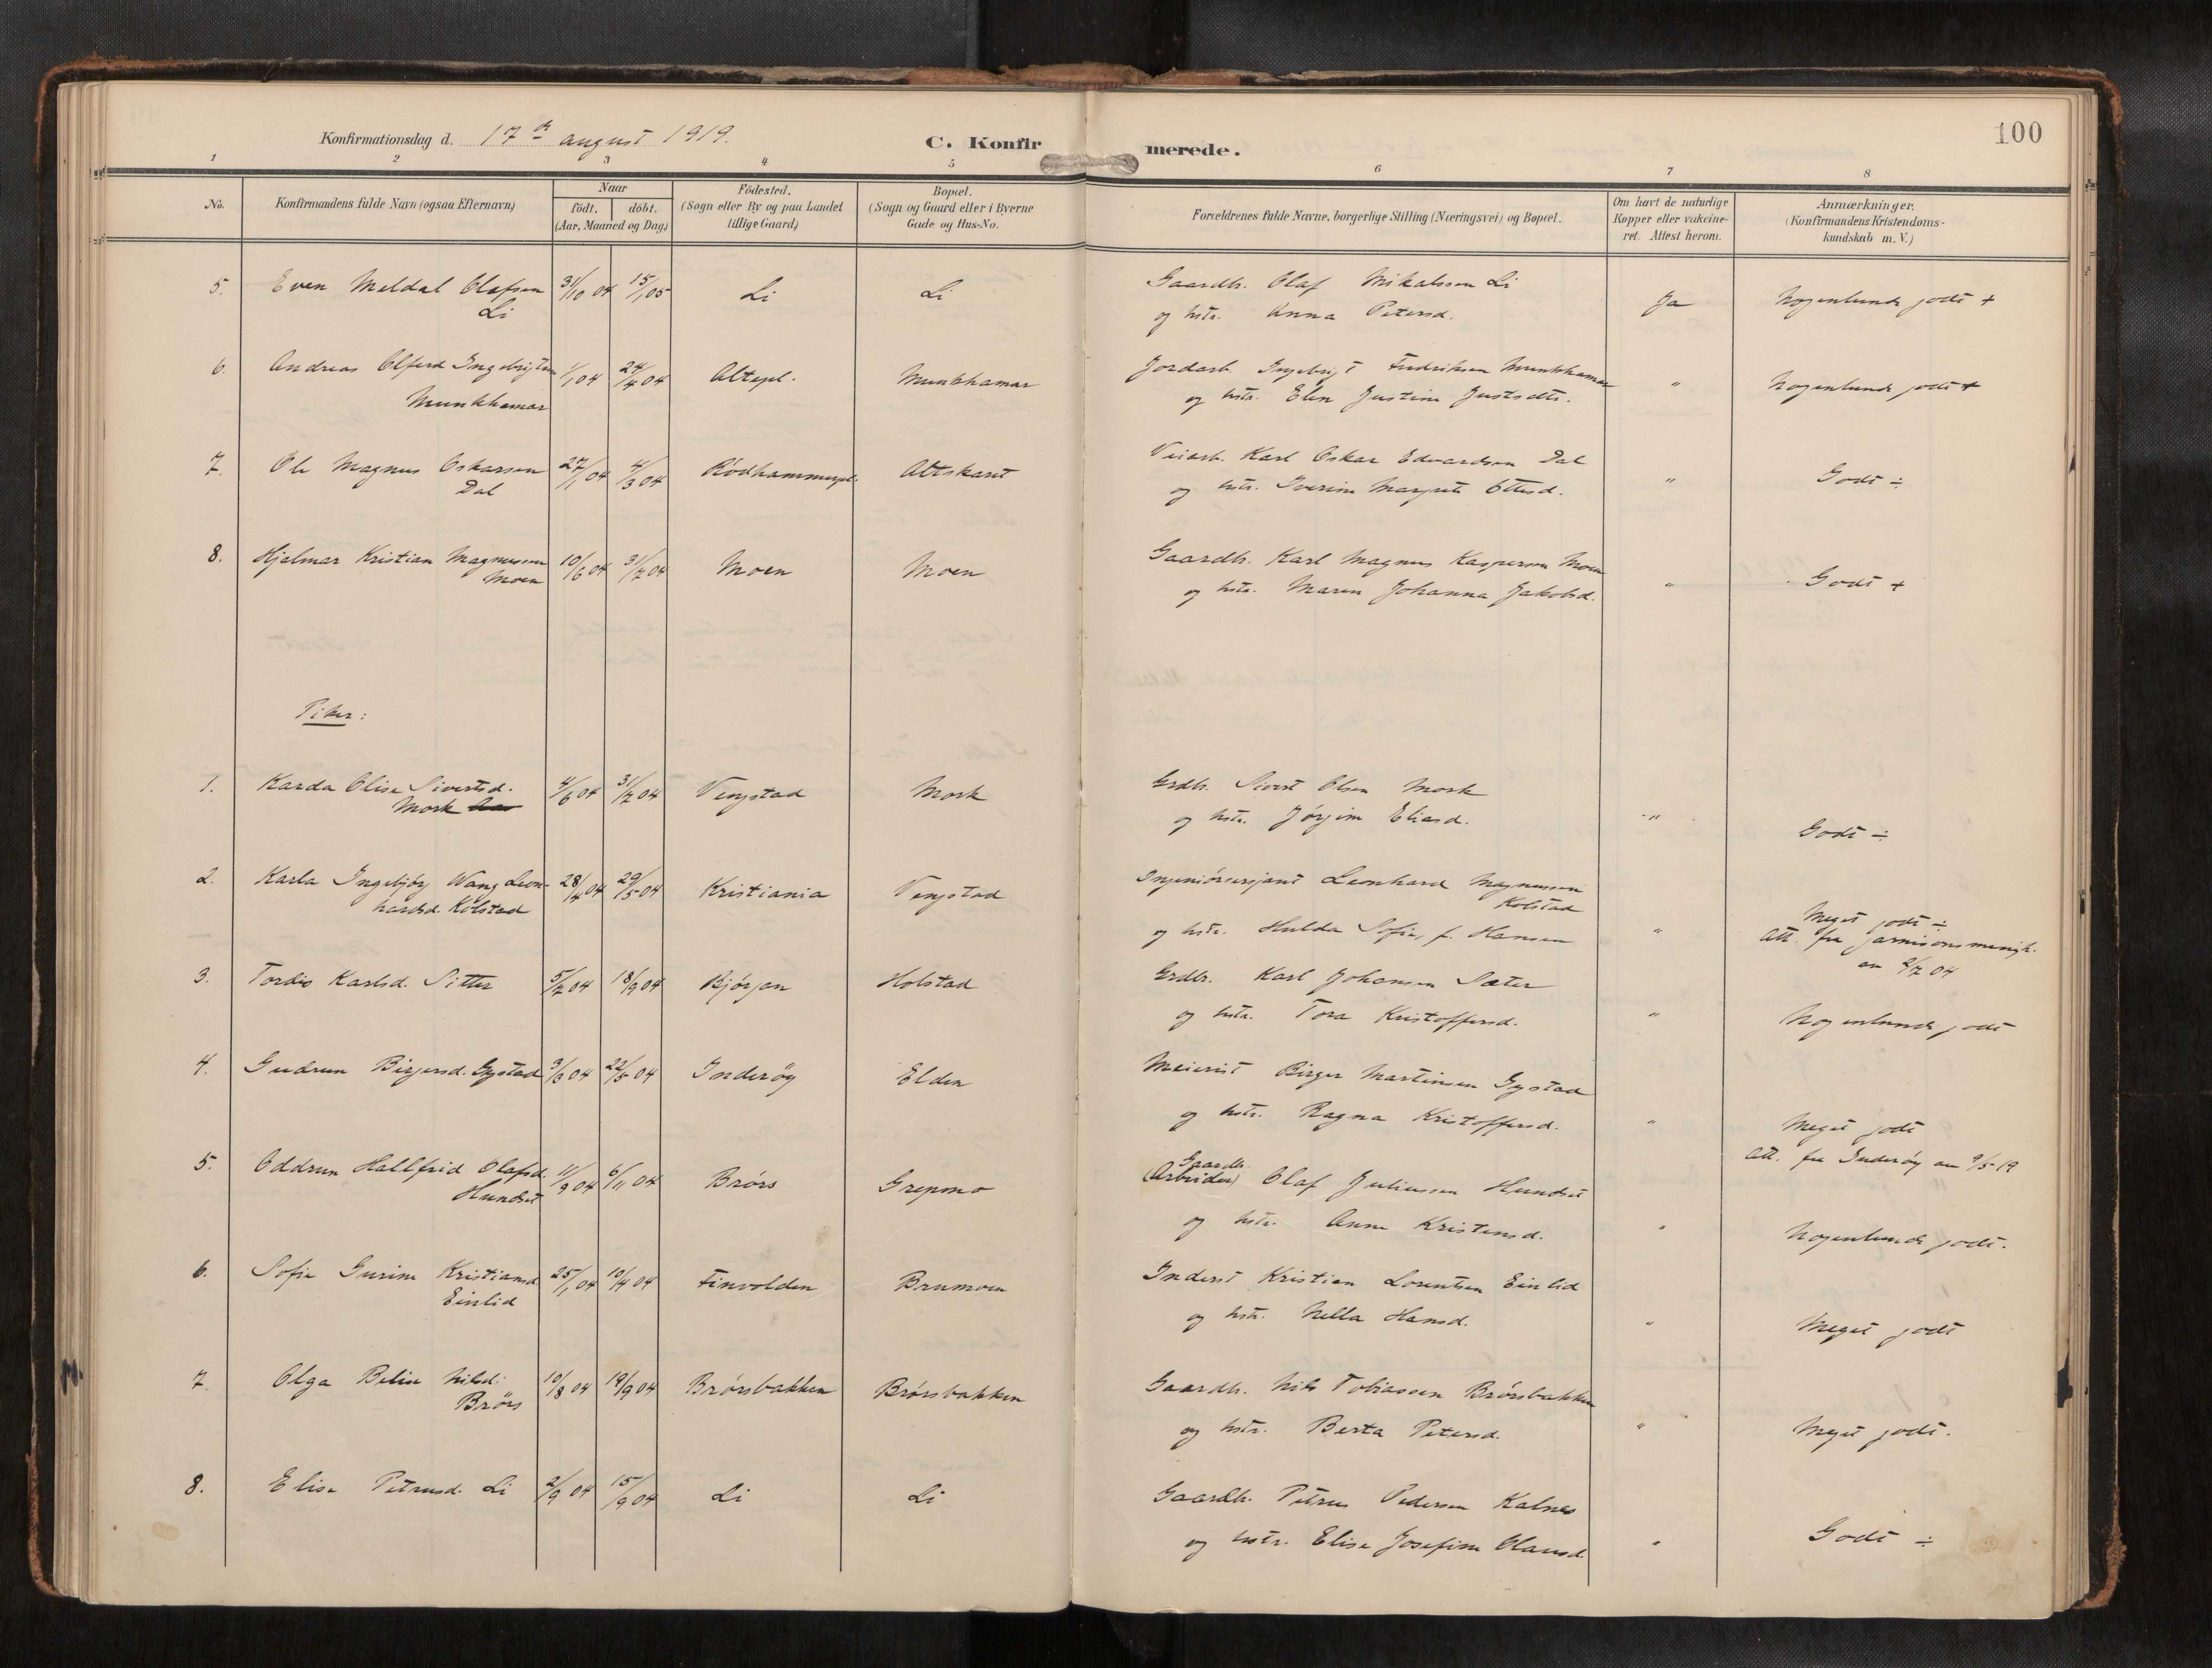 100
Konfirmationsdag d. 17de august 1919.
C. Konfirmerede.
1 2 3 4 5 6 7 8
No.
Konfirmandens fulde Navn (ogsaa Efternavn)
Naar
födt. döbt.
(Aar, Maaned og Dag)
Födested.
(Sogn eller By og paa Landet
tillige Gaard)
Bopæl.
(Sogn og Gaard eller i Byerne
Gade og Hus-No.
Forældrenes fulde Navne, borgerlige Stilling (Næringsvei) og Bopæl.
Om havt de naturlige
Kopper eller vakcine-
ret. Attest herom.
Anmærkninger.
(Konfirmandens Kristendoms-
kundskab m.V.)
5. Even Meldal Olafsen 31/10 04 15/1 05 Li Li Gaardbr. Olaf Mikalssen Li Ja Nogenlunde godt +
Li og hstr. Anna Petersd.
6. Andreas Alfred Ingebrigtsen 1/1 04 24/4 04 Altepl. Munkhamar Jordarb. Ingebrigt Fredriksen Munkhamar " Nogenlunde godt +
Munkhamar og hstr. Elen Justine Justsdtr.
7. Ole Magnus Oskarsen 27/1 04 4/3 04 Rödhammerpl. Altskaret Veiarb. Karl Oskar Edvardsen Dal " Godt ÷
Dal og hstr. Iverine Margrete Ottesd.
8. Hjalmar Kristian Magnussen 10/6 04 31/7 04 Moen Moen Gaardbr. Karl Magnus Kaspersen Moen " Godt +
Moen og hstr. Maren Johanna Jakobsd.
Piker:
1. Karda Olise Sivertsd. 4/6 04 31/7 04 Vengstad Mork Grdbr. Sivert Olsen Mork " Godt ÷
Mork og hstr. Jørgine Eliasd.
2. Karla Ingebjörg Wang Leon- 28/4 04 29/5 04 Kristiania Vengstad Ingeniörsersjant Leonhard Magnussen
hardsd. Kolstad Kolstad
og hstr. Hulda Sofie, f. Hansen " Meget godt ÷
Att. fra garnisonsmenigh.
an 2/7 04
3. Tordis Karlsd. Sitter 5/7 04 18/9 04 Bjørgan Holstad Grdbr. Karl Johansen Sæter
og hstr. Tora Kristoffersd. " Nogenlunde godt
4. Gudrun Birgersd. Gystad 3/3 04 22/5 04 Inderøy Elden Meierist Birger Martinsen Gystad
og hstr. Ragna Kristoffersd. " Meget godt
Att. fra Inderøy an 9/5 19
5. Oddrun Hallfrid Olafsd. 11/9 04 6/11 04 Brörs Grepmo Gaardbr.
Hundset (Arbeider) Olaf Juliussen Hundset
og hstr. Anne Kristensd. " Nogenlunde godt.
6. Sofie Gurine Kristiansd 25/1 04 10/4 04 Finvolden Brumoen Inderst Kristian Lorentsen Einlid
Einlid og hstr. Nella Hansd. " Meget godt
7. Olga Beline Nilsd. 10/8 04 19/9 04 Brörsbakken Brörsbakken Gaardbr. Nils Tobiassen Brörsbakken
Brörs og hstr. Berta Petersd. " Meget godt.
8. Elise Petrusd. Li 2/9 04 15/9 04 Li Li Gaardbr. Petrus Pedersen Kalnes
og hstr. Elise Josefine Olausd. " Godt ÷